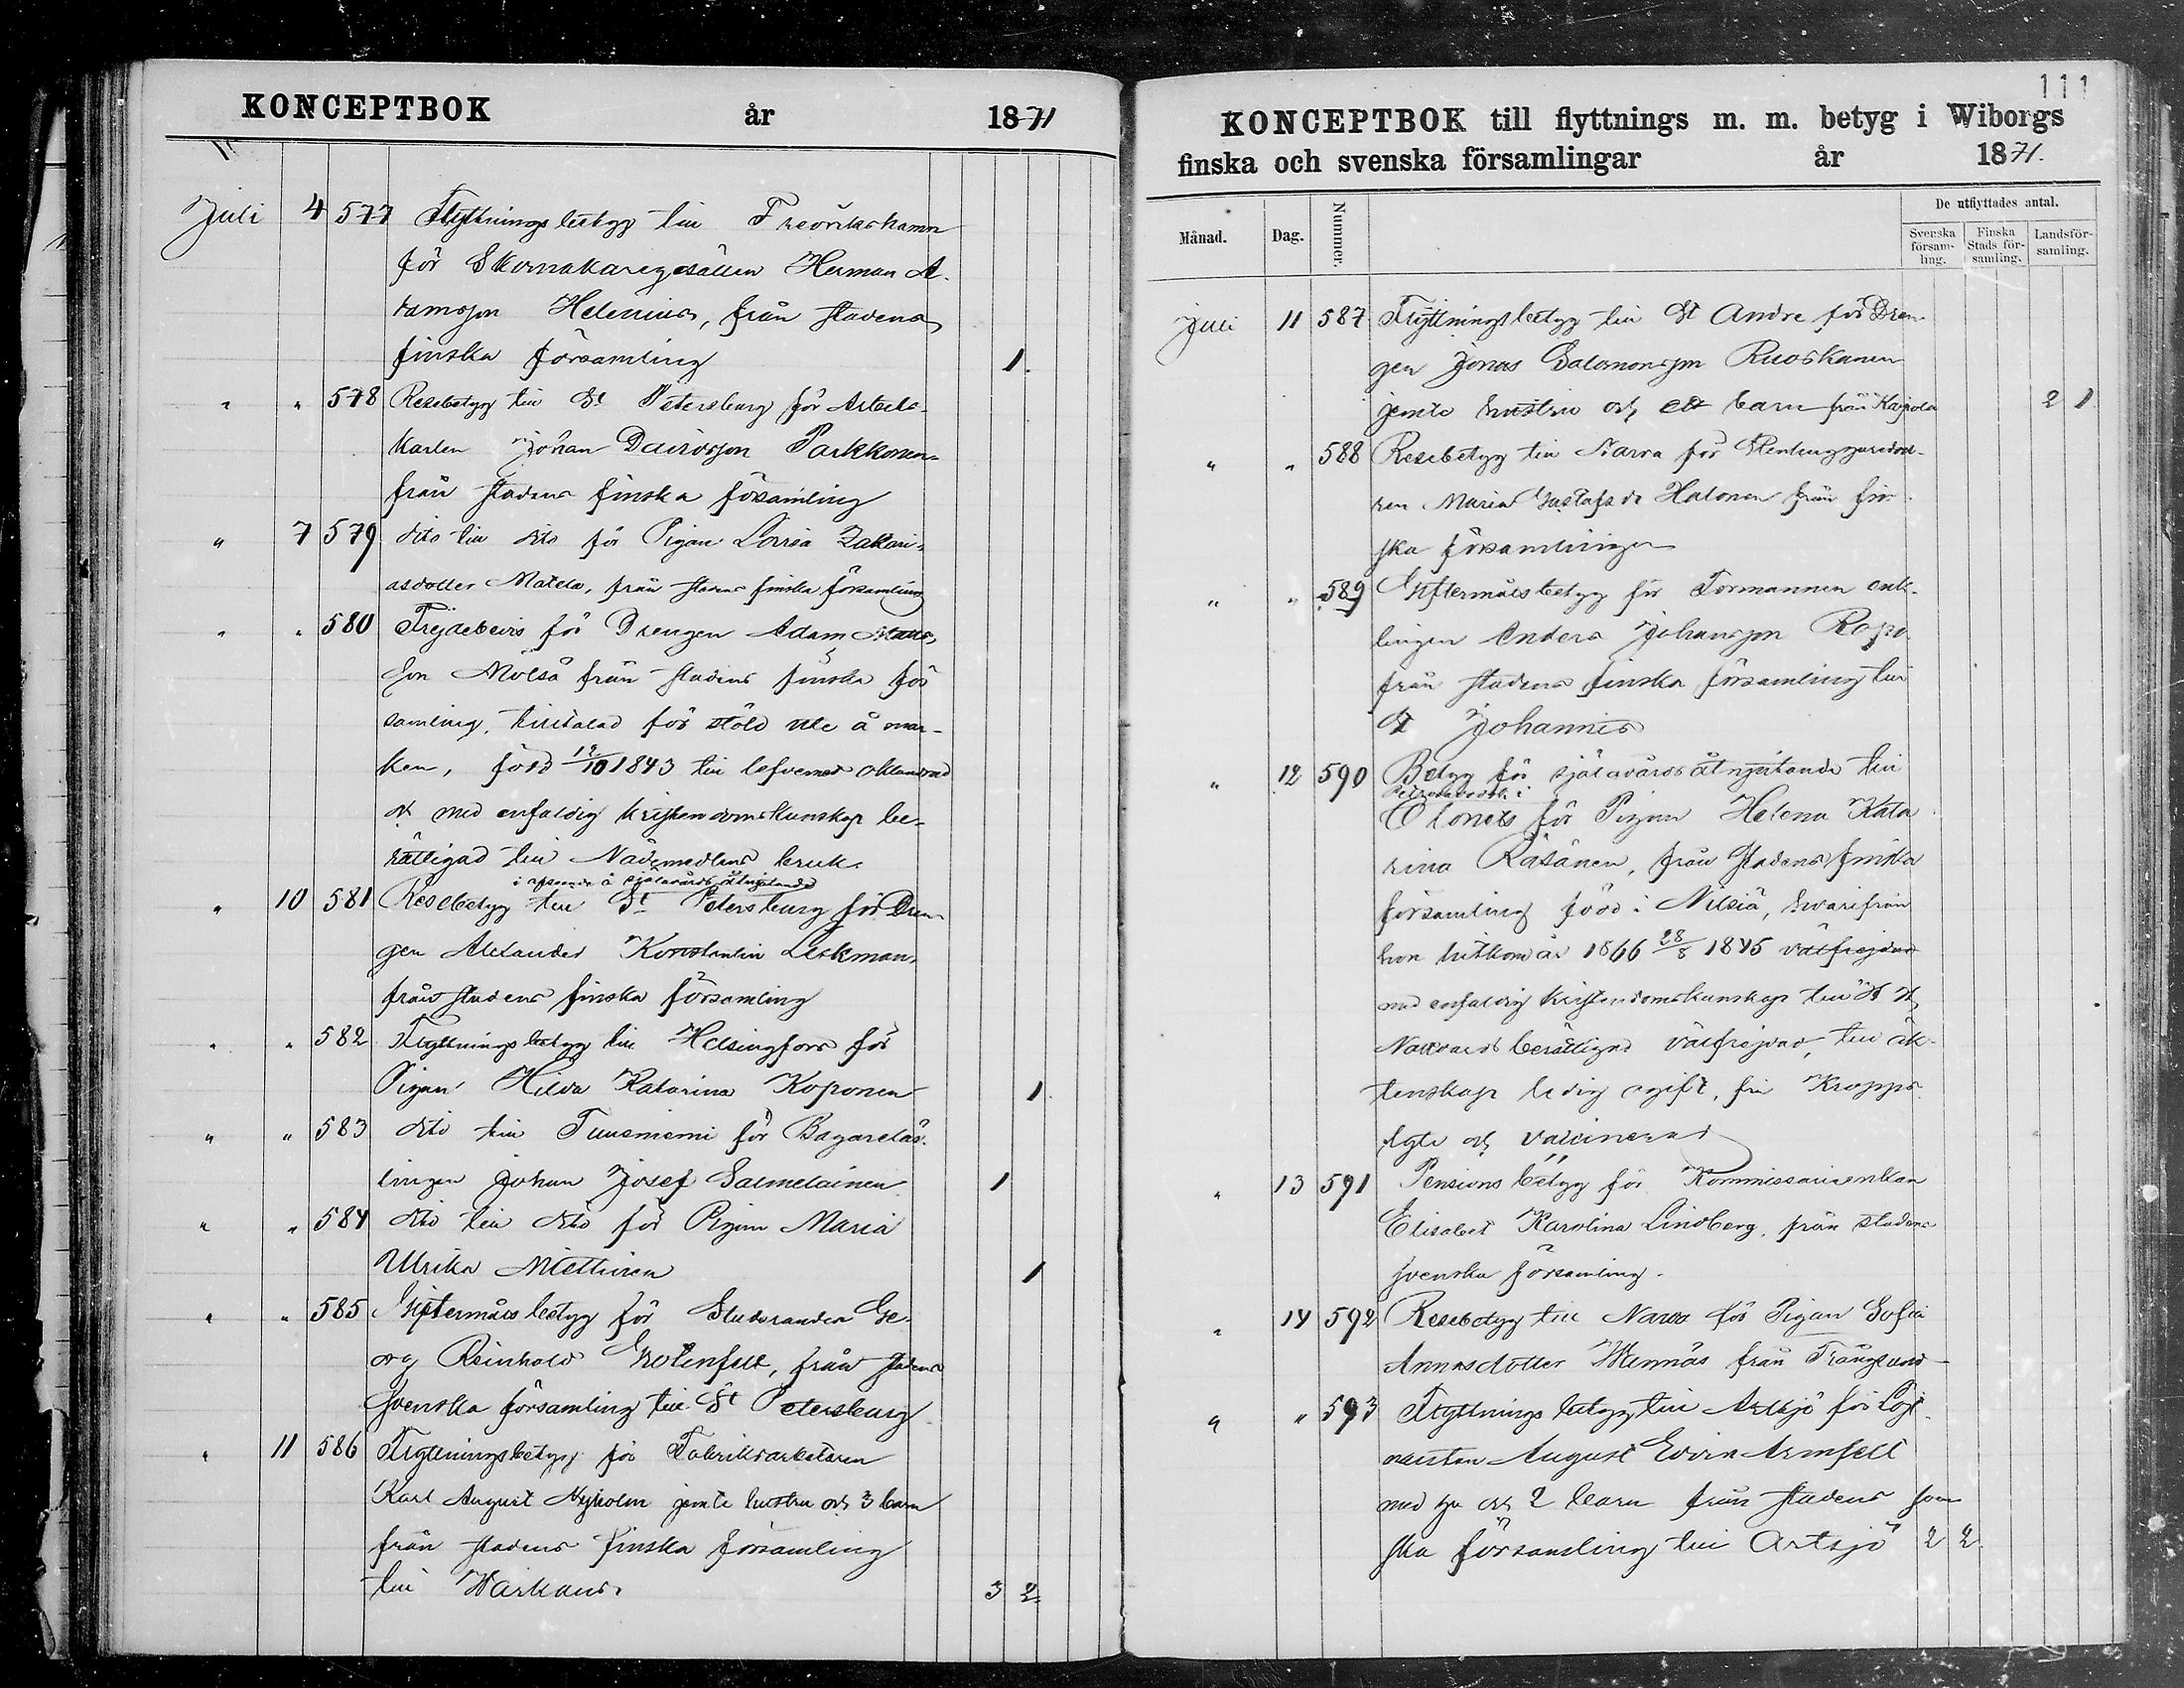 KONCEPTBOK år 1871
Juli 4 577 Flyttningsbetyg till Fredrikshamn
för Skomakaregesällen Herman A-
damsson Helenius, från stadens
finska församling 1.
" " 578 Resebetyg till St Petersburg för Arbets-
karlen Johan Davidsson Parkkonen
från stadens finska församling
" 7 579 dito till dito för Pigan Lovisa Zakari-
asdotter Matela, från stadens finska församling
" " 580 Frejdebevis för Drengen Adam Matts-
son Mölsä från stadens finska för
samling, tilltalad för stöld ute å mar-
ken, född 12/10 1843 till lefvernet oklandrad
och med enfaldig kristendomskunskap be-
rättigad till Nådemedlens bruk.
i afseende å själavårds åtnjutande
" 10 581 Resebetyg till St Petersburg för Dren-
gen Alexander Konstantin Leskman,
från stadens finska församling
" " 582 Flyttningsbetyg till Helsingfors för
Pigan Hilda Katarina Koponen 1.
" " 583 dito till Tuusniemi för Bagarelär-
lingen Johan Josef Salmelainen 1
" " 584 dito till dito för Pigan Maria
Ulrika Miettinen 1
" " 585 Giftermålsbetyg för Studeranden Ge-
org Reinhold Grotenfelt, från stadens
svenska församling till St Petersburg
" 11 586 Flyttningsbetyg för Fabriksarbetaren
Karl August Nyholm jemte hustru och 3 barn
från stadens finska församling
till Warkaus. 3 2.
111
KONCEPTBOK till flyttnings m. m. betyg i Wiborgs
finska och svenska församlingar år 1871.
Månad. Dag. Nummer. De utflyttades antal.
Svenska församling. Finska Stads församling. Landsförsamling.
Juli 11 587 Flyttningsbetyg till St Andre för Dren-
gen Jonas Salomonsson Ruoskanen
jemte hustru och ett barn från Kaipola 2 1
" " 588 Resebetyg till Narva för
Maria Gustafsdr Halonen från fin-
ska församlingen
" " 589 Giftermålsbetyg för Formannen enk-
lingen Anders Johansson Ropo
från stadens finska församling till
St Johannis
" 12 590 Betyg för själavårds åtnjutande till
Petrosavodsk i
Olonets för Pigan Helena Kata
rina Räsänen, från stadens finska
församling född i Nilsiä, hvarifrån
hon hitkom år 1866 28/8 1845 välfrejdad
med enfaldig kristendomskunskap till H H
Nattvard berättigad välfrejdad, till äk-
tenskap ledig ogift, fri Kropps
lyte och vaccinerad
" 13 591 Pensionsbetyg för Kommissarieenkan
Elisabet Karolina Lindberg, från stadens
svenska församling.
" 14 592 Resebetyg till Narva för Pigan Sofia
Annasdotter Wennäs från Trångsund
" " 593 Flyttningsbetyg till Artsjö för Löjt-
nanten August Edvin Armfelt
med fru och 2 barn från stadens sven
ska församling till Artsjö 2 2.